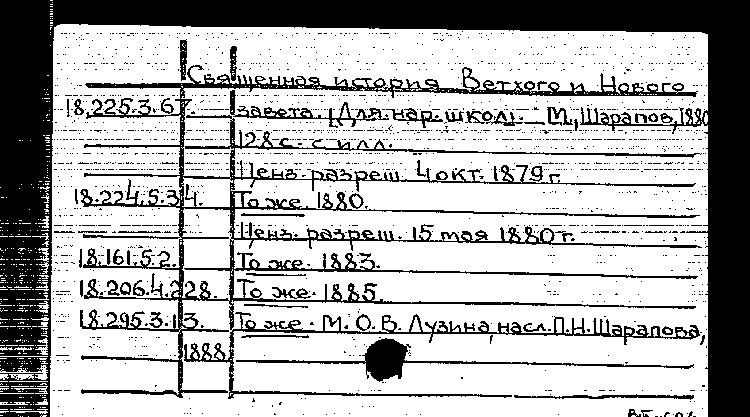 Священная история Ветхого и Нового
18.225.3.67. завета. (Для нар. школ). М., Шарапов, 1880
128 с. с илл.
Ценз. разреш. 4 окт. 1879 г.
18.224.5.34. То же. 1880.
Ценз. разреш. 15 мая 1880 г.
18.161.5.2. То же. 1883.
18.206.4.228. То же. 1885.
18.295.3.13. То же. М. О.В. Лузина, насл. П.Н. Шарапова,
1888.